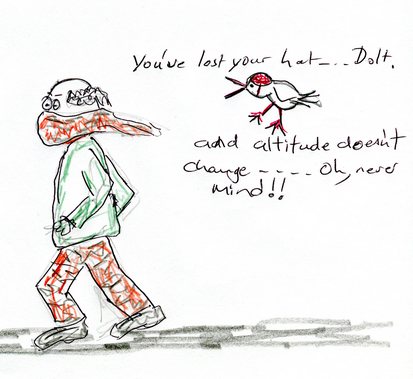 You've lost your hat_... Dolt.
and altitude doesn't
change ---- Oh, never
mind!!